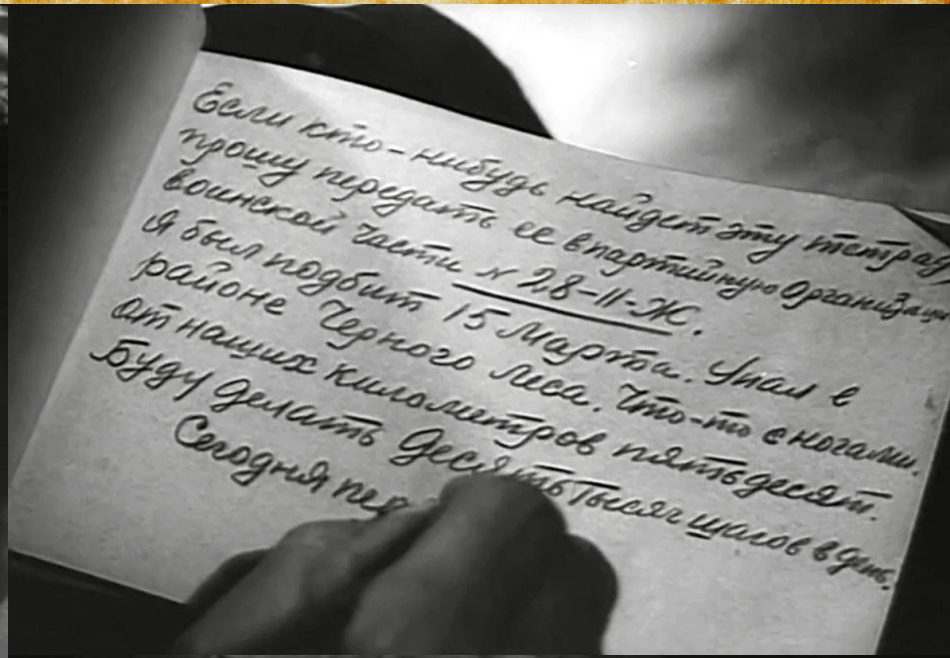 Если кто-нибудь найдет эту тетрадь
прошу передать ее в партийную Организаци
воинской части N 28-II-Ж.
Я был подбит 15 Марта. Упал в
районе Черного Леса. Что-то с ногами.
от наших километров пятьдесят.
Буду делать Десять Тысяч шагов в день.
Сегодня пер